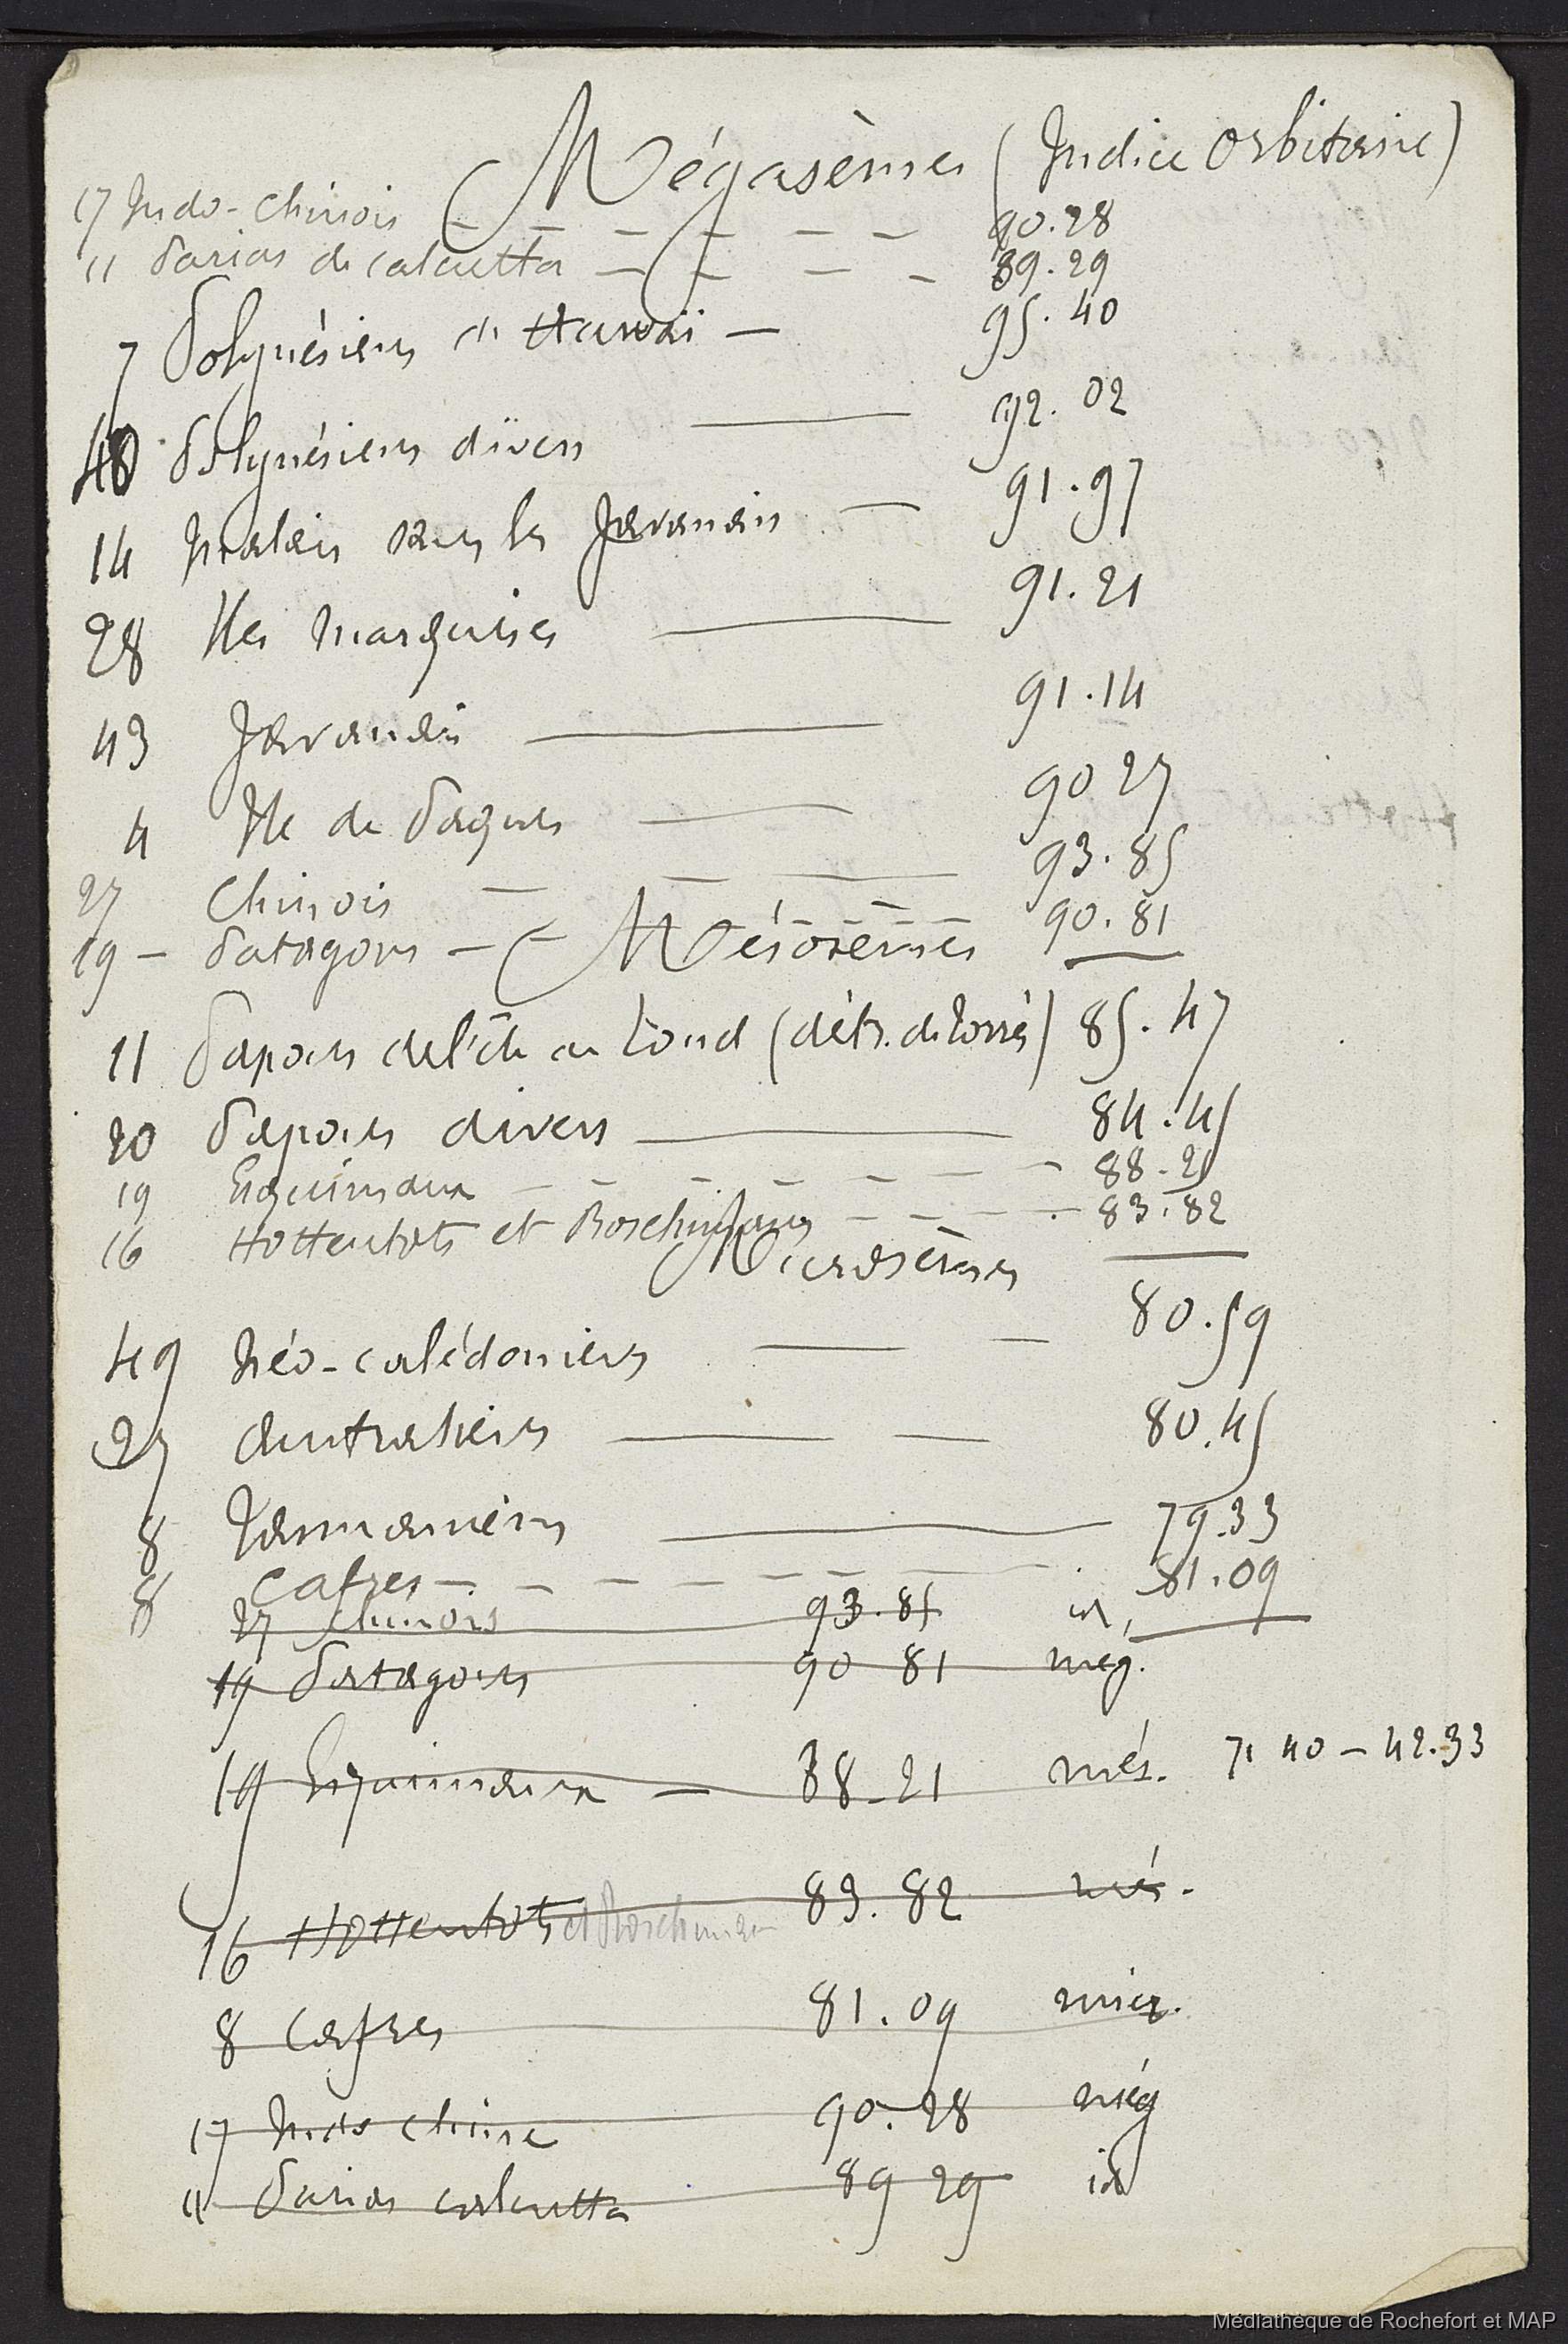 Mégasèmes (Indice Orbitaire)
17 Indo-chinois - - - - - - 90.28
11 Parias de Calcutta - - - - 89.29
7 Polynésiens d'Hawaï - 95.40
48 Polynésiens divers - 92.02
14 Malais sans les Javanais - 91.97
28 Iles Marquises - 91.21
43 Javanais - 91.14
4 Ile de Pâques - 90 27
27 Chinois - - - 93.85
19 - Patagons - - - - - 90.81
Mésosèmes
11 Papous de l'île de Toud (dét. de Torrès) 85.47
20 Papous divers - 84.45
19 Esquimaux - - - - - - 88-21
16 Hottentots et Boschimans - - - - 83.82
Microsèmes
49 Néo-calédoniens - - 80.59
27 Australiens - - 80.45
8 Tasmaniens - 79.33
8 Cafres - - - - - - - 81.09
27 Chinois 93.85 id.
19 Patagons 90 81 még.
19 Esquimaux - 88-21 més. 71 40 - 42.33
16 Hottentots et Boschiman 83.82 més.
8 Cafres 81.09 micr.
17 Indo Chine 90.28 még
11 Parias Calcutta 89 29 id
Médiathèque de Rochefort et MAP